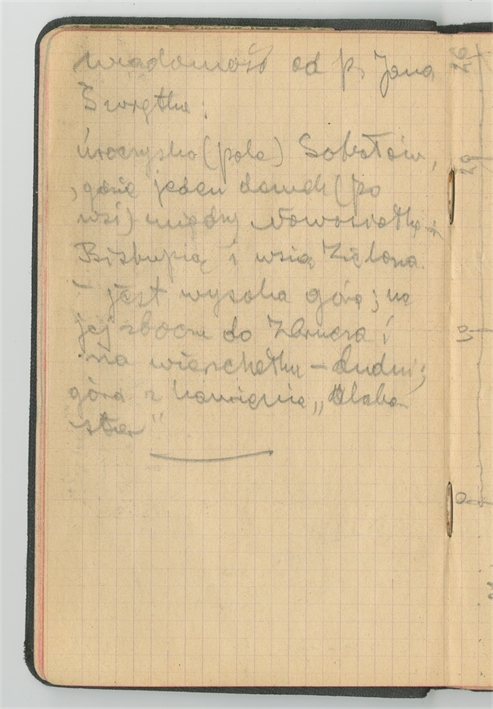 wiadomość od p. Jana
Świętka:
Uroczysko (pole) Sobotów,
gdzie jeden domek (po
wsi) między Nowosiółką
Biskupią i wsią Zielona
- jest wysoka góra; na
jej zboczu do Zbrucza i
na wierzchołku - dudni;
góra z kamienia „Alaba-
ster"
26